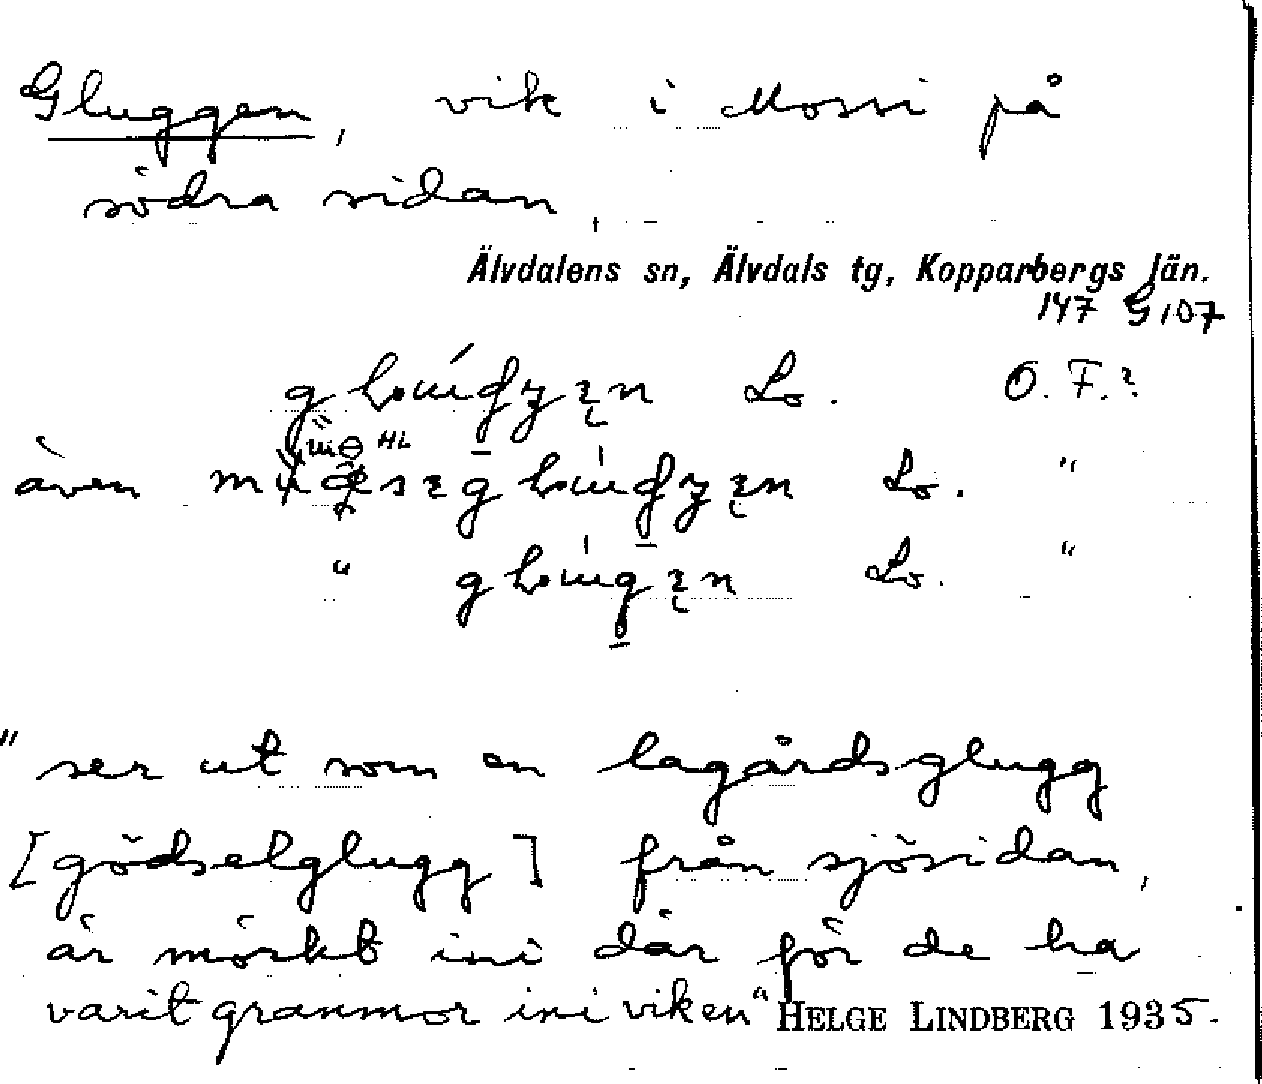 Gluggen, vik i Mossi på
södra sidan
Älvdalens sn, Älvdals tg, Kopparbergs län.
147 G 107
Lo. O. F.?
HL
även Lo. "
" Lo. "
"ser ut som en lagårdsglugg
[gödselglugg] från sjösidan,
är mörkt ini där för de ha
varit granmor ini viken" HELGE LINDBERG 1935.